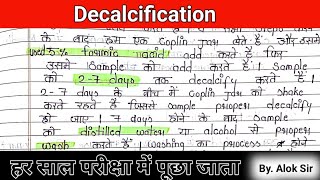 Decalcification
के बाद हम एक Coplin Jar लेते हैं और उसमें
used 5% formic nacid add करते हैं फिर
उसमें Sample को add करते हैं। Sample
को 2-7 days तक decalcify करते हैं।
2-7 days के बीच में Coplin Jar को Shake
करते रहते हैं जिससे sample proper decalcify
हो जाए। 7 days होने के बाद Sample
को distilled water या alcohol से proper
wash करते हैं। washing का process होने
हर साल परीक्षा में पूछा जाता
By. Alok Sir